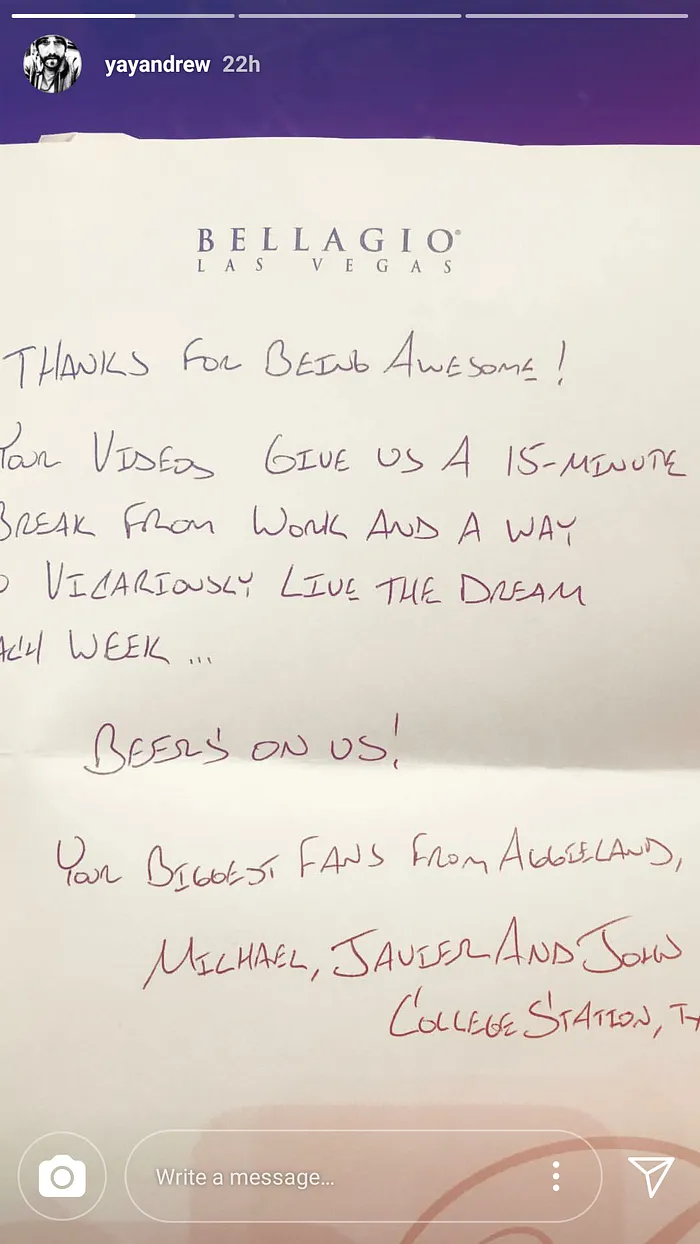 yayandrew 22h
BELLAGIO®
LAS VEGAS
THANKS FOR BEING AWESOME!
YOUR VIDEOS GIVE US A 15-MINUTE
BREAK FROM WORK AND A WAY
O VICARIOUSLY LIVE THE DREAM
ACH WEEK ...
BEERS ON US!
YOUR BIGGEST FANS FROM AGGIELAND,
MICHAEL, JAVIER AND JOHN
COLLEGE STATION, TX
Write a message...